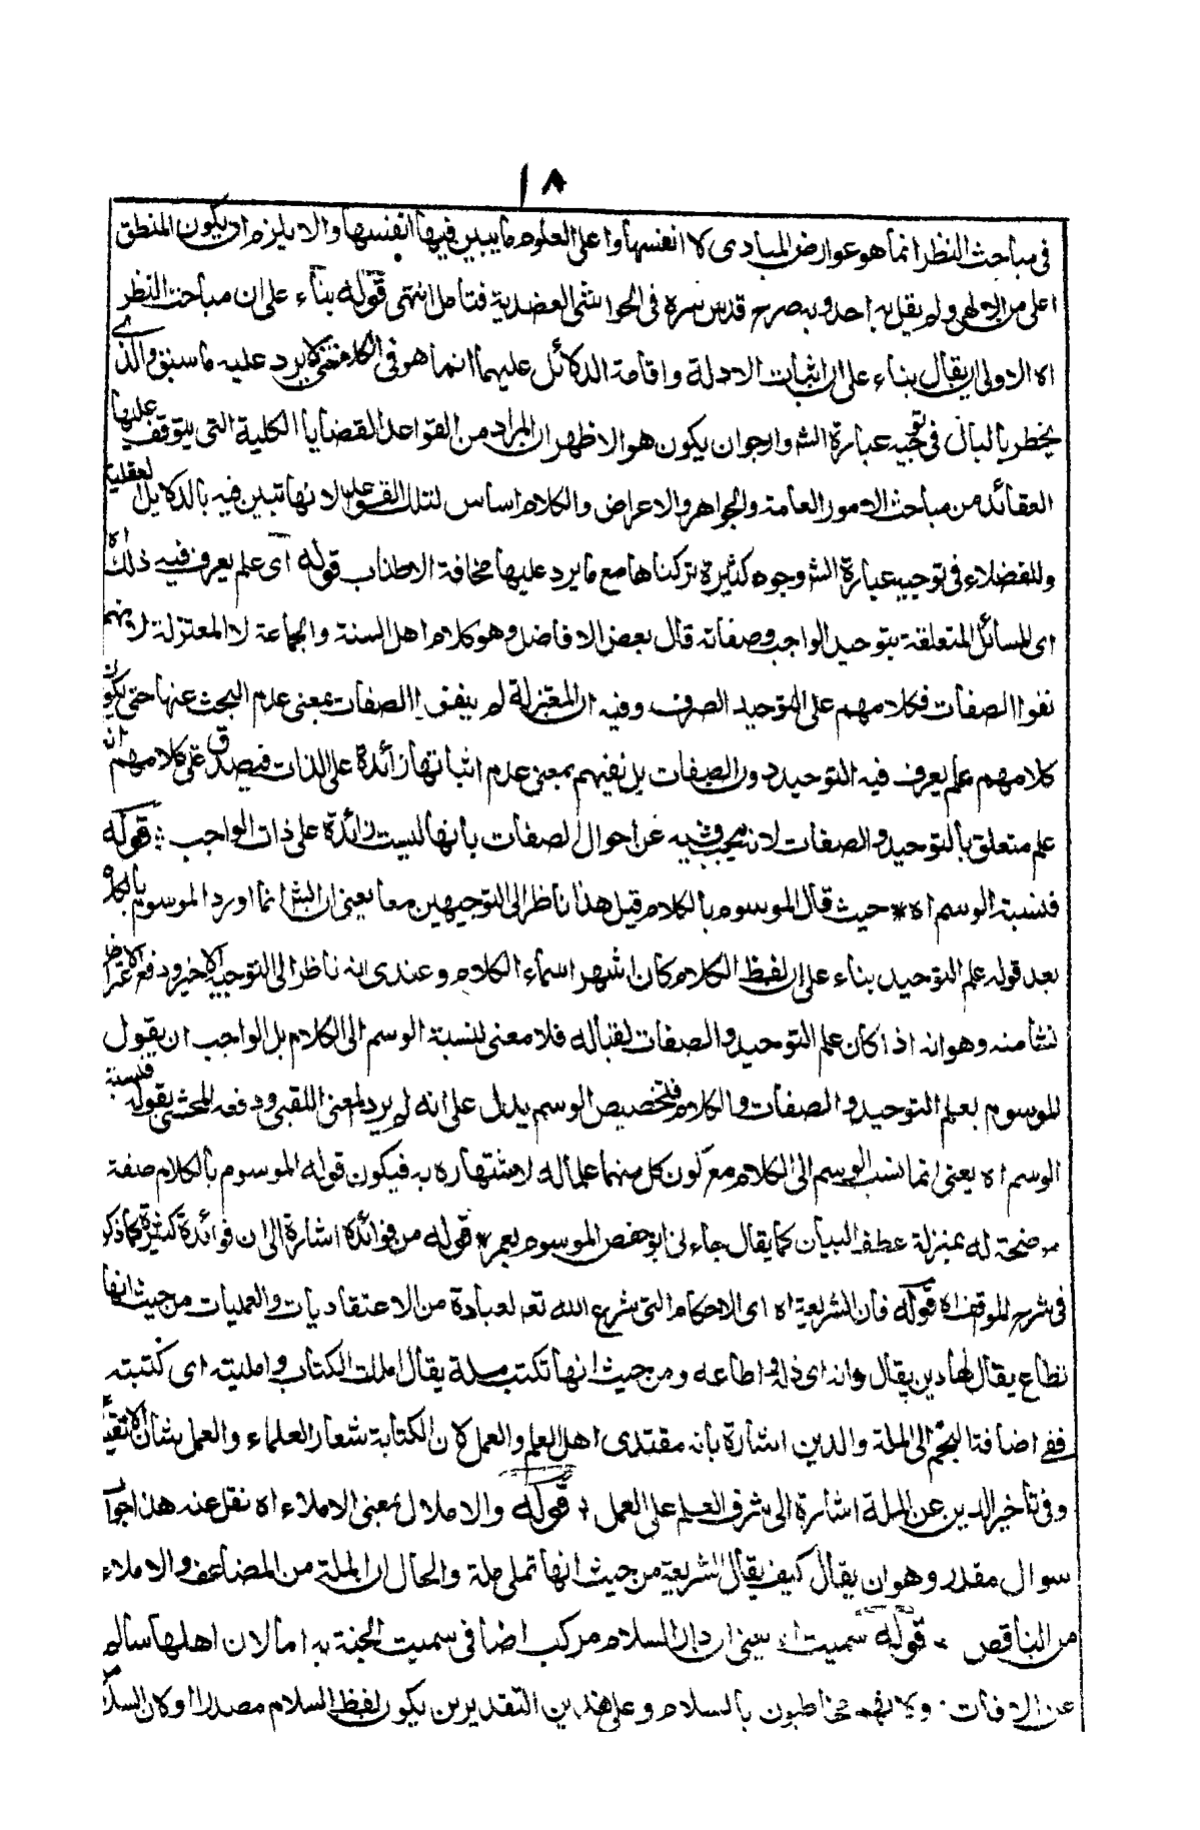 ١٨
في مباحث النظر انما هو عوارض المبادى لا انفسها واعلى العلوم ما يبين فيها انفسها والا يلزم ان يكون المنطق
اعلى من الالهى ولم يقل به احد وبه صرح قدس سره فى الحواشى العضدية فتامل انتهى قوله بناء على ان مباحث النظر
اه الاولى ان يقال بناء على ان اثبات الادلة واقامة الدلائل عليهما انما هو فى الكلام حتى لا يرد عليه ما سبق والذى
يخطر بالبال فى توجيه عبارة الش وارجو ان يكون هو الاظهر ان المراد من القواعد القضايا الكلية التى يتوقف عليها
العقائد من مباحث الامور العامة والجواهر والاعراض والكلام اساس لتلك القواعد لانها تتبين فيه بالدلايل العقلية
وللفضلاء فى توجيه عبارة الش وجوه كثيرة تركناها مع ما يرد عليها مخافة الاطناب قوله اى علم يعرف فيه ذلك اه
اى المسائل المتعلقة بتوحيد الواجب وصفاته قال بعض الافاضل وهو كلام اهل السنة والجماعة لا المعتزلة لانهم
نفوا الصفات فكلامهم على التوحيد الصرف وفيه ان المعتزلة لم ينفوا الصفات بمعنى عدم البحث عنها حتى يكون
كلامهم علم يعرف فيه التوحيد دون الصفات بل نفيهم بمعنى عدم اثباتها زائدة على الذات فيصدق على كلامهم انه
علم متعلق بالتوحيد والصفات لانه يبحث فيه عن احوال الصفات بانها ليست زائدة على ذات الواجب قوله
فنسبة الوسم اه * حيث قال الموسوم بالكلام قيل هذا ناظر الى التوجيهين معا يعنى ان الش انما اورد الموسوم بالكلام
بعد قوله علم التوحيد بناء على ان لفظ الكلام كان اشهر اسماء الكلام وعندى انه ناظر الى التوجيه الاخير ودفع الاعتراض
نشأ منه وهو انه اذا كان علم التوحيد والصفات لقبا له فلا معنى لنسبة الوسم الى الكلام بل الواجب ان يقول
الموسوم بعلم التوحيد والصفات والكلام فتخصيص الوسم يدل على انه لم يرد المعنى اللقبى ودفعه المحشى بقوله فنسبة
الوسم اه يعنى انما نسب الوسم الى الكلام مع كون كل منهما علما له لاشتهاره به فيكون قوله الموسوم بالكلام صفة
موضحة له بمنزلة عطف البيان كما يقال جاءنى ابو حفص الموسوم بعمر * قوله من فوائده اشارة الى ان فوائده كثيرة كما ذكر
فى شرح المواقف اه قوله فان الشريعة اه اى الاحكام التى شرع الله تعه لعباده من الاعتقاديات والعمليات من حيث انها
تطاع يقال لها دين يقال دانه اى ذله واطاعه ومن حيث انها تكتب ملة يقال امللت الكتاب وامليته اى كتبته
ففى اضافة النجم الى الملة والدين اشارة بانه مقتدى اهل العلم والعمل لان الكتابة شعار العلماء والعمل شان الاتقياء
وفى تأخير الدين عن الملة اشارة الى شرف العلم على العمل قوله والاملال بمعنى الاملاء اه نقل عنه هذا جواب
سوال مقدر وهو ان يقال كيف يقال الشريعة من حيث انها تملى ملة والحال ان الملة من المضاعف والاملاء
من الناقص قوله سميت اه يعنى ان دار السلام مركب اضافى سميت الجنة به اما لان اهلها سالم
عن الافات ولانهم مخاطبون بالسلام وعلى هذين التقديرين يكون لفظ السلام مصدرا او كان السلام